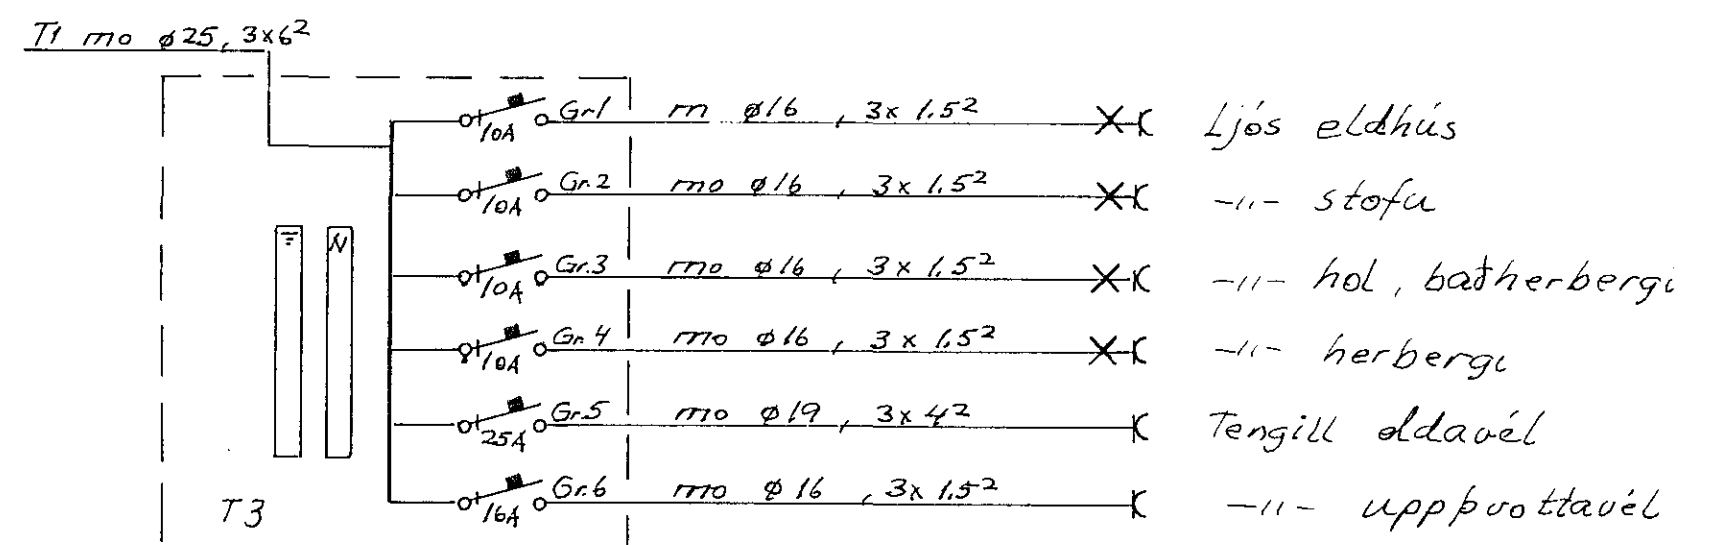 T1 mo ø25, 3x6²
10A Gr.1 m ø16, 3x 1.5² Ljós eldhús
10A Gr.2 mo ø16, 3x 1.5² -"- stofu
⏚ N
10A Gr.3 mo ø16, 3x 1.5² -"- hol, baðherbergi
10A Gr.4 mo ø16, 3x 1.5² -"- herbergi
25A Gr.5 mo ø19, 3x 4² Tengill eldavél
16A Gr.6 mo ø16, 3x 1.5² -"- uppþvottavél
T3